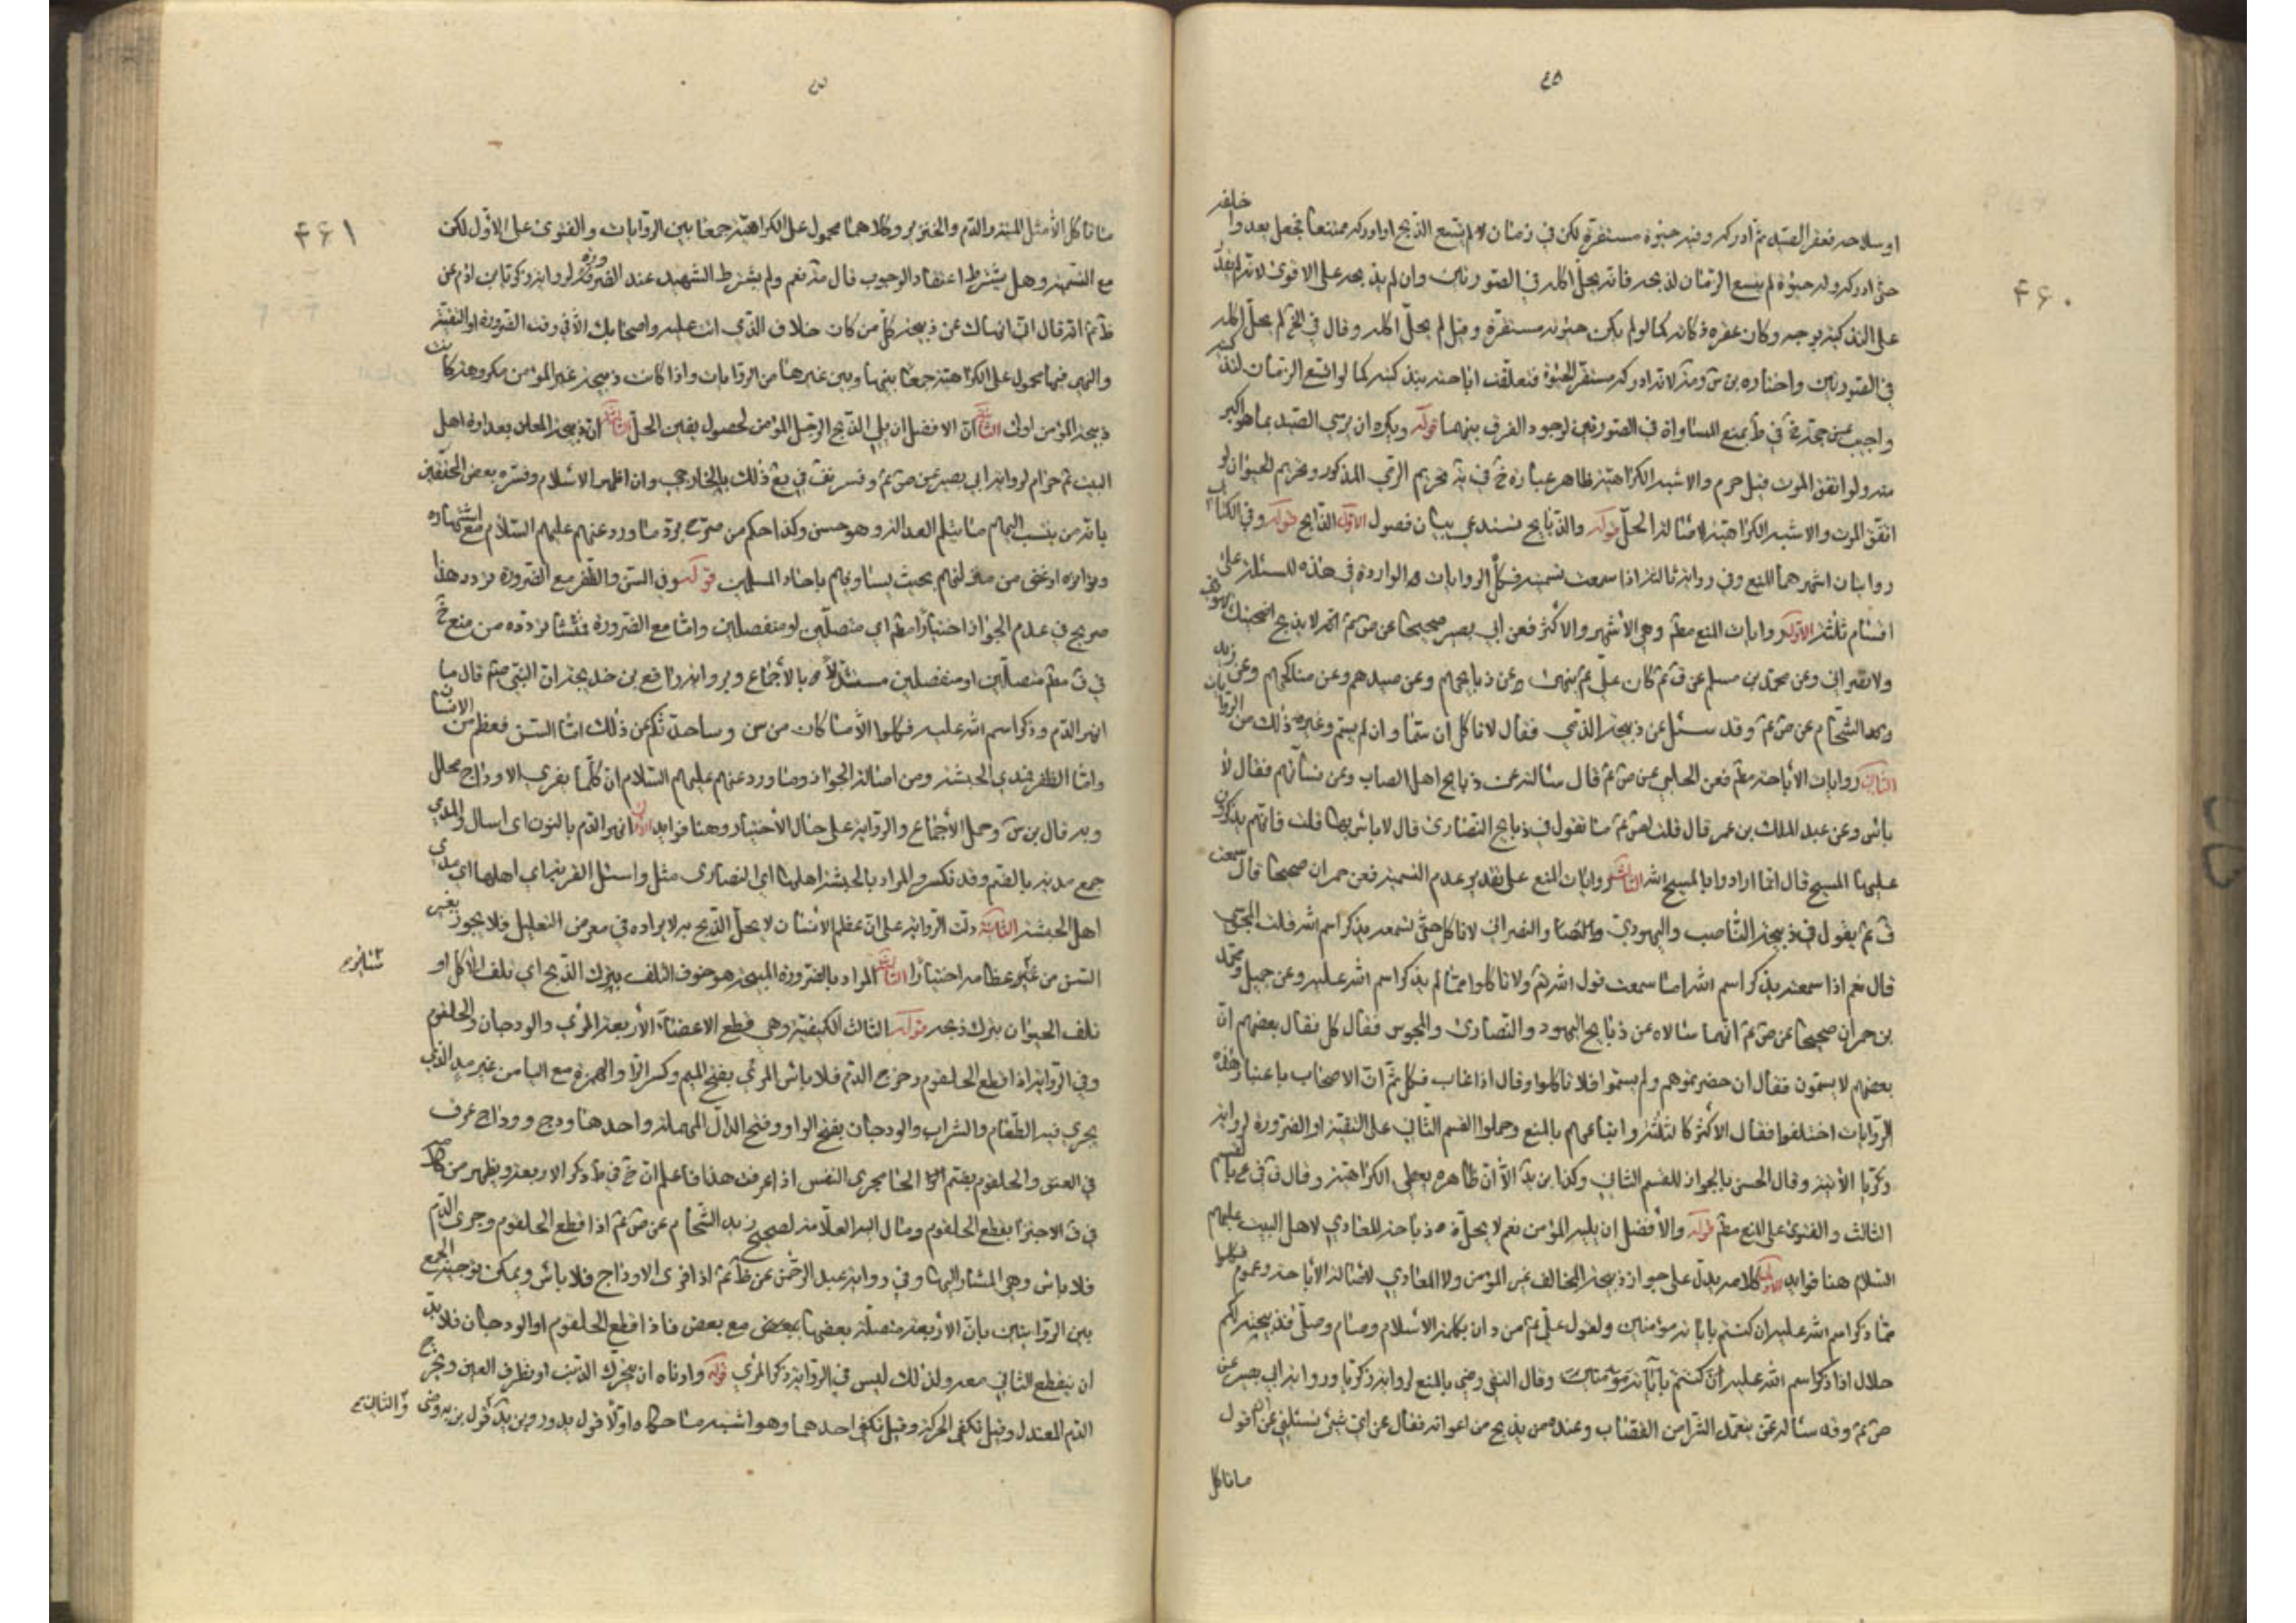 ٤٦٠
او سلاحه فعقر الصيد ثم ادركه وفيه حيوة مستقرة لكن في زمان لا يتسع الذبح او ادركه ممتنعا فجعل يعدوا خلفه
حتى ادركه وله حيوة لم يتسع الزمان لذبحه فانه يحل اكله في الصورتين وان لم يذبحه على الاقوى لانه لم يقدر
على التذكية بوجه وكان عقره ذكاته كما لو لم يكن حيوته مستقرة وقيل لم يحل اكله وقال في الخ لم يحل اكله
في الصورتين واختاره بن س لانه ادركه مستقر الحيوة فتعلقت اباحته بتذكيته كما لو اتسع الزمان
واجيب عن حجة خ في ط بمنع المساواة في الصورتين لوجود الفرق بينهما قوله ويكره ان يرمي الصيد بما هو اكبر
منه ولو اتفق الموت قيل حرم والاشبه الكراهية ظاهر عبارة خ في يه تحريم الرمي المذكور وتحريم الحيوان لو
اتفق الموت والاشبه الكراهية لاصالة الحل قوله والذبايح تستدعي بيان فصول الاول الذابح قوله وفي الكتابي
روايتان اشهرهما المنع وفي رواية ثالثة اذا سمعت تسميته فكل الروايات الواردة في هذه المسئلة على
اقسام ثلثة الاول روايات المنع مطم وهي الاشهر والاكثر فعن ابي بصير صحيحا عن ص ع لا يذبح اضحيتك يهودي
ولا نصراني وعن محمد بن مسلم عن ق ع كان علي ع ينهى عن ذبايحهم وعن صيدهم وعن مناكحهم وعن زيد
الشحام عن ص ع وقد سئل عن ذبيحة الذمي فقال لا تاكل ان سما وان لم يسم وغير ذلك من الروايات
الثاني روايات الاباحة مطم فعن الحلبي عن ص ع قال سالته عن ذبايح اهل الكتاب وعن نسائهم فقال لا
باس وعن عبد الملك بن عمر قال قلت لص ع ما تقول في ذبايح النصارى قال لا باس بها قلت فانهم يذكرون
عليها المسيح قال انما ارادوا بالمسيح الله الثالث روايات المنع على تقدير عدم التسمية فعن حمران صحيحا قال سمعت
ق ع يقول في ذبيحة الناصب واليهودي والنصراني لا تاكل حتى تسمعه يذكر اسم الله قلت المجوسي
قال نعم اذا سمعته يذكر اسم الله اما سمعت قول الله تع ولا تاكلوا مما لم يذكر اسم الله عليه وعن جميل ومحمد
بن حمران صحيحا عن ص ع انهما سالاه عن ذبايح اليهود والنصارى والمجوس فقال كل فقال بعضهم ان
بعضهم لا يسمون فقال ان حضرتموهم ولم يسموا فلا تاكلوا وقال اذا غاب فكل ثم ان الاصحاب باعتبار هذه
الروايات اختلفوا فقال الاكثر كالثلثة واتباعهم بالمنع وحملوا القسم الثاني على التقية او الضرورة لرواية
زكريا الاتية وقال الحسن بالجواز للقسم الثاني وكذا بن الا ان ظاهره يعطى الكراهية وقال ق في
الثالث والفتوى على المنع مطم قوله والافضل ان يليه المؤمن نعم لا يحل ذباحة المعادي لاهل البيت عليهم
السلام هنا فوايد الاولى كلامه يدل على جواز ذبيحة المخالف غير المؤمن ولا المعادي لاصالة الاباحة وعموم فكلوا
مما ذكر اسم الله عليه ان كنتم باياته مؤمنين ولقول علي ع من دان بكلمة الاسلام وصام وصلى فذبيحته لكم
حلال اذا ذكر اسم الله عليه ان كنتم باياته مؤمنين وقال التقي وضى بالمنع لرواية زكريا ورواية ابي بصير عن
ص ع وقد ساله عن يتعمد الشرا من القصاب وعنده من يذبح من اعوانه فقال عن اي شئ تسئلني عن اقول
ما تاكل
٤٦١
ما تاكل الا مثل الميتة والدم والخنزير وكلاهما محمول على الكراهية جمعا بين الروايات والفتوى على الاول لكن
مع التسمية وهل يشترط اعتقاد الوجوب قال مد نعم ولم يشترط الشهيد عند الضرورة لرواية زكريا بن ادم عن
ظ ثم انه قال اني انهاك عن ذبيحة كل من كان خلاف الذي انت عليه واصحابك الا في وقت الضرورة او التقية
والنهي فيها محمول على الكراهية جمعا بينها وبين غيرها من الروايات واذا كانت ذبيحة غير المؤمن مكروهة كانت
ذبيحة المؤمن اولى الثانية ان الافضل ان يلي الذبح الرجل المؤمن لحصول يقين الحل الثالثة ان ذبيحة المعلن بعداوة اهل
البيت ع حرام لرواية ابي بصير عن ص ع وفسر ذلك بالخارجي وان اظهر الاسلام وفسره بعض المحققين
بانه من ينسب اليهم ما يثلم العدالة وهو حسن وكذا حكم من صرح برد ما ورد عنهم عليهم السلام مع اشتهاره
وتواتره او غض من منزلتهم بحيث يساويهم باحاد المسلمين قوله وفي السن والظفر مع الضرورة تردد هذا
صريح في عدم الجواز اختيارا مطم اي متصلين او منفصلين واما مع الضرورة فنشا تردده من منع خ
في ف مطم متصلين او منفصلين مستدلا بالاجماع وبرواية رافع بن خديجة ان النبي صم قال ما
انهر الدم وذكر اسم الله عليه فكلوا الا ما كان من سن وساحدثكم عن ذلك اما السن فعظم من الانسان
واما الظفر فمدي الحبشة ومن اصالة الجواز وما ورد عنهم عليهم السلام ان كلما يفري الاوداج محلل
وبه قال بن س وحمل الاجماع والرواية على حال الاختيار وهنا فوايد الاولى انهر الدم بالنون اي اسال والمدي
جمع مدية بالضم وقد تكسر والمراد بالحبشة اهلها اي النصارى مثل واسئل القرية اي اهلها اي مدي
اهل الحبشة الثانية دلت الرواية على ان عظم الانسان لا يحل الذبح به لايراده في معرض التعليل فلا يجوز بغير
السن من غير عظامه اختيارا الثالثة المراد بالضرورة المبيحة هو خوف التلف بترك الذبح اي تلف الاكل او
تلف الحيوان بترك ذبحه قوله الثالث الكيفية وهي قطع الاعضاء الاربعة المرئ والودجان والحلقوم
وفي الرواية اذا قطع الحلقوم وخرج الدم فلا باس المرئ بفتح الميم وكسر الرا والهمزة مع اليا من غير مد الذي
يجري فيه الطعام والشراب والودجان بفتح الواو وفتح الدال المهملة واحدها ودج ووداج عرف
في العنق والحلقوم بضم الحا مجرى النفس اذا عرفت هذا فاعلم ان خ في ط ذكر الاربعة ويظهر من كلامه
في ف الاجتزا بقطع الحلقوم ومال اليه العلامة لصحيح زيد الشحام عن ص ع اذا قطع الحلقوم وجرى الدم
فلا باس وهي المشار اليها وفي رواية عبد الرحمن عن ظ ع اذا فرى الاوداج فلا باس ويمكن توجيه الجمع
بين الروايتين بان الاربعة متصلة بعضها مع بعض فاذا قطع الحلقوم او الودجان فلا بد
ان ينقطع الثاني معه ولذلك ليس في الرواية ذكر المرئ قوله وادناه ان يتحرك الذنب او تطرف العين ويخرج
الدم المعتدل وقيل تكفي الحركة وقيل تكفي احدهما وهو اشبه ما حكاه اولا قول